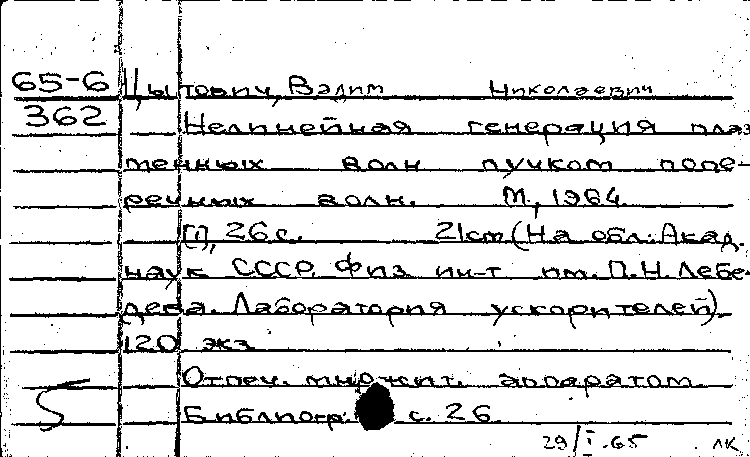 65-6 Цытович, Вадим Николаевич
362 Нелинейная генерация плаз-
менных волн пучком попе-
речных волн. М., 1964.
[1], 26 с. 21 см (На обл.: Акад.
наук СССР. Физ. ин-т им. П.Н. Лебе-
дева. Лаборатория ускорителей).
120 экз.
Отпеч. множит. аппаратом.
Библиогр.: с. 26.
5
29/I.65 ЛК